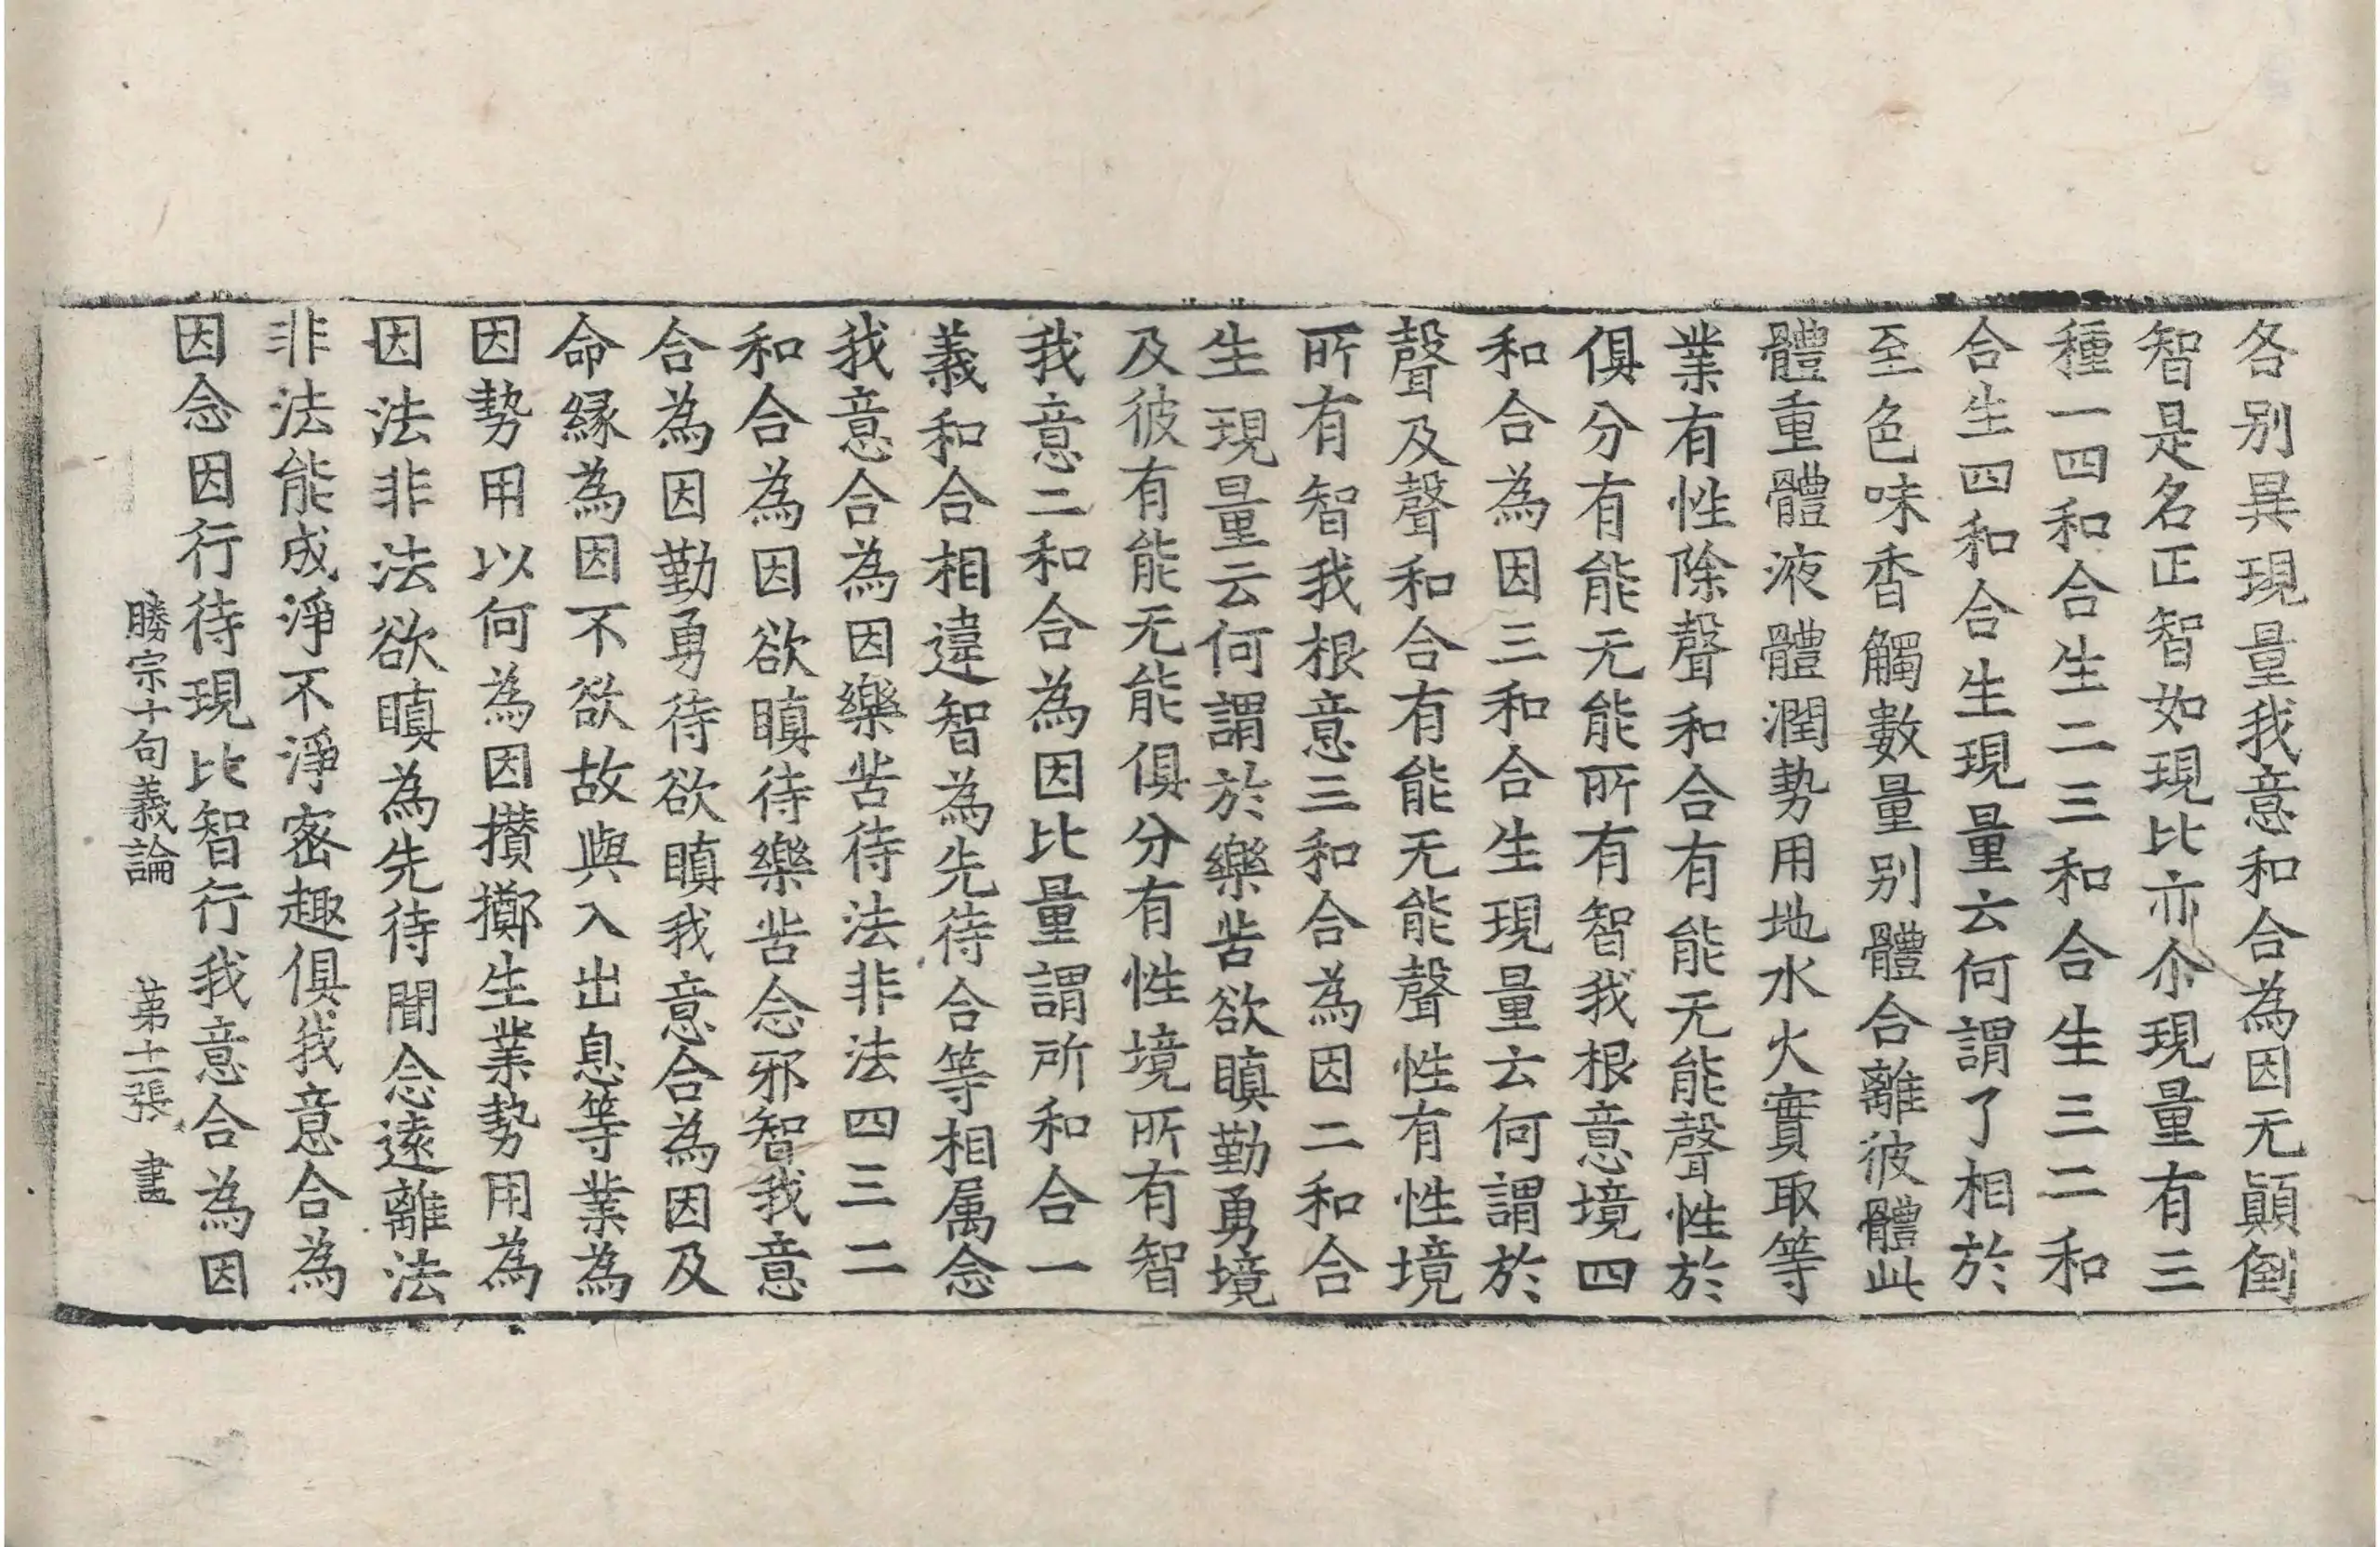 各别異現量我意和合為因无顚倒
智是名正智如現比亦尒現量有三
種一四和合生二三和合生三二和
合生四和合生現量云何謂了相於
至色味香觸數量别體合離彼體此
體重體液體潤勢用地水火實取等
業有性除聲和合有能无能聲性於
俱分有能无能所有智我根意境四
和合為因三和合生現量云何謂於
聲及聲和合有能无能聲性有性境
所有智我根意三和合為因二和合
生現量云何謂於樂苦欲瞋勤勇境
及彼有能无能俱分有性境所有智
我意二和合為因比量謂所和合一
義和合相違智為先待合等相属念
我意合為因樂苦待法非法四三二
和合為因欲瞋待樂苦念邪智我意
合為因勤勇待欲瞋我意合為因及
命縁為因不欲故與入出息等業為
因勢用以何為因攅擲生業勢用為
因法非法欲瞋為先待聞念遠離法
非法能成淨不淨密趣俱我意合為
因念因行待現比智行我意合為因
勝宗十句義論 苐十一張 畫